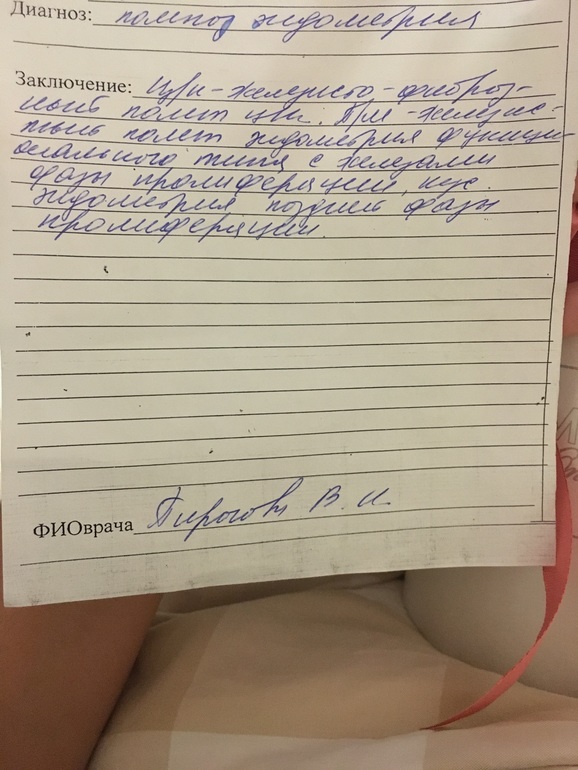 Диагноз: полип эндометрия
Заключение: Ц/к - железисто-фиброз-
ный полип ц/к. П/м - железис-
тый полип эндометрия функци
онального типа с железами
фазы пролиферации, кус.
эндометрия поздней фазы
пролиферации.
ФИОврача Пирогов В. И.